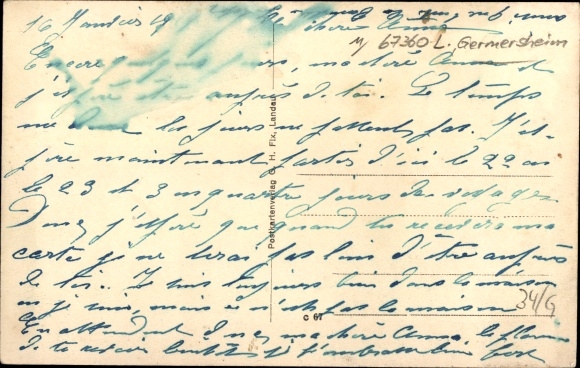 16 Janvier 19
chère Anna
M/ 67360 L. Germersheim
Encore quelques jours, ma chère Anna et
j'espère être auprès de toi. Le temps
me dure les jours ne passent pas. J'es-
père maintenant partir d'ici le 22 ou
le 23 et 3 ou quatre jours de voyage.
Donc j'espère que quand tu recevras ma
carte je ne serai pas loin d'être auprès
de toi. Je suis toujours bien dans la maison
ou je suis, mais ce n'est pas la maison
34/G
En attendant Anna, ma chère Anna, le
de te revoir bientôt je t'embrasse bien fort
Postkartenverlag G. H. Fix, Landau
C 67